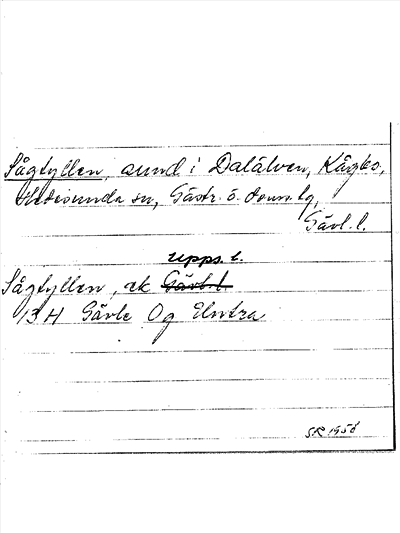 Sågtyllen, sund i Dalälven, Kågbo,
Hedesunda sn, Gästr. ö. doms.lg,
Gävl. l.
Upps. l.
Sågtyllen, ek Gävl. l.
13 H Gävle Og Elvtra
SR 1958